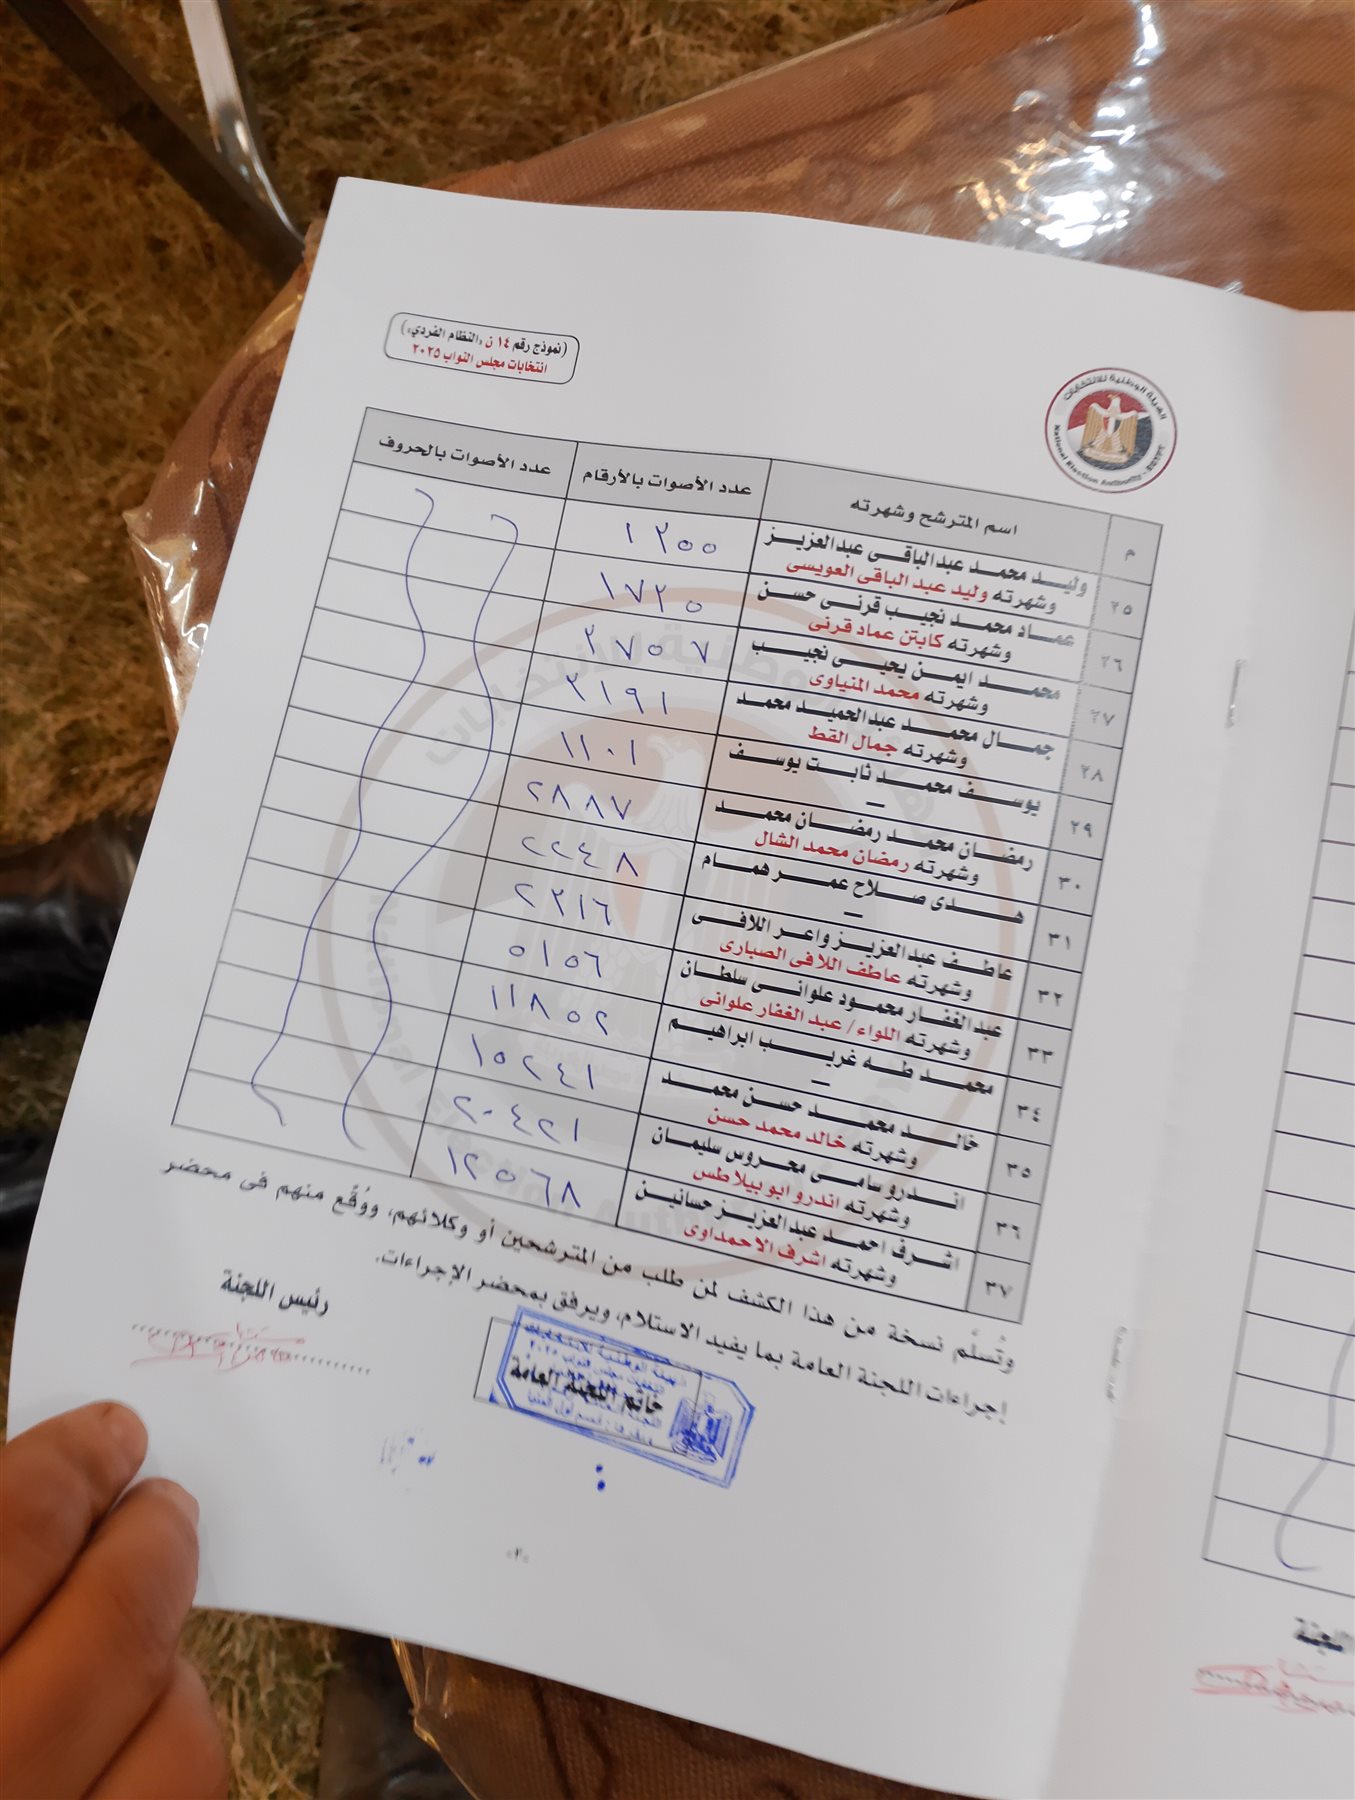 (نموذج رقم ١٤ ن «النظام الفردي»)
انتخابات مجلس النواب ٢٠٢٥
الهيئة الوطنية للانتخابات
National Election Authority - EGYPT
م	اسم المترشح وشهرته	عدد الأصوات بالأرقام	عدد الأصوات بالحروف
٢٥	وليد محمد عبدالباقى عبدالعزيز	١٢٥٥
وشهرته وليد عبد الباقى العويسى
٢٦	عماد محمد نجيب قرنى حسن	١٧٢٥
وشهرته كابتن عماد قرنى
٢٧	محمد ايمن يحيى نجيب	٢٧٥٧
وشهرته محمد المنياوى
٢٨	جمال محمد عبدالحميد محمد	٢١٩١
وشهرته جمال القط
٢٩	يوسف محمد ثابت يوسف	١١٠١
–
٣٠	رمضان محمد رمضان محمد	٢٨٨٧
وشهرته رمضان محمد الشال
٣١	هدى صلاح عمر همام	٢٢٤٨
–
٣٢	عاطف عبدالعزيز واعر اللافى	٢٢١٦
وشهرته عاطف اللافى الصبارى
٣٣	عبدالغفار محمود علوانى سلطان	٥١٥٦
وشهرته اللواء / عبد الغفار علوانى
٣٤	محمد طه غريب ابراهيم	١١٨٥٢
–
٣٥	خالد محمد حسن محمد	١٥٢٤١
وشهرته خالد محمد حسن
٣٦	اندرو سامى محروس سليمان	٢٠٤٢١
وشهرته اندرو ابو بيلاطس
٣٧	اشرف احمد عبدالعزيز حسانين	١٢٥٦٨
وشهرته اشرف الاحمداوى
وتُسلَّم نسخة من هذا الكشف لمن طلب من المترشحين أو وكلائهم، ووُقِّع منهم فى محضر
إجراءات اللجنة العامة بما يفيد الاستلام، ويرفق بمحضر الإجراءات.
رئيس اللجنة
خاتم اللجنة العامة
الهيئة الوطنية للانتخابات
انتخابات مجلس النواب ٢٠٢٥
«٢»
اللجنة